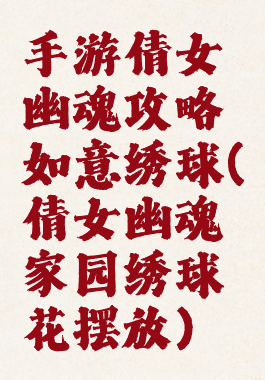 手游倩女
幽魂攻略
如意绣球(
倩女幽魂
家园绣球
花摆放)